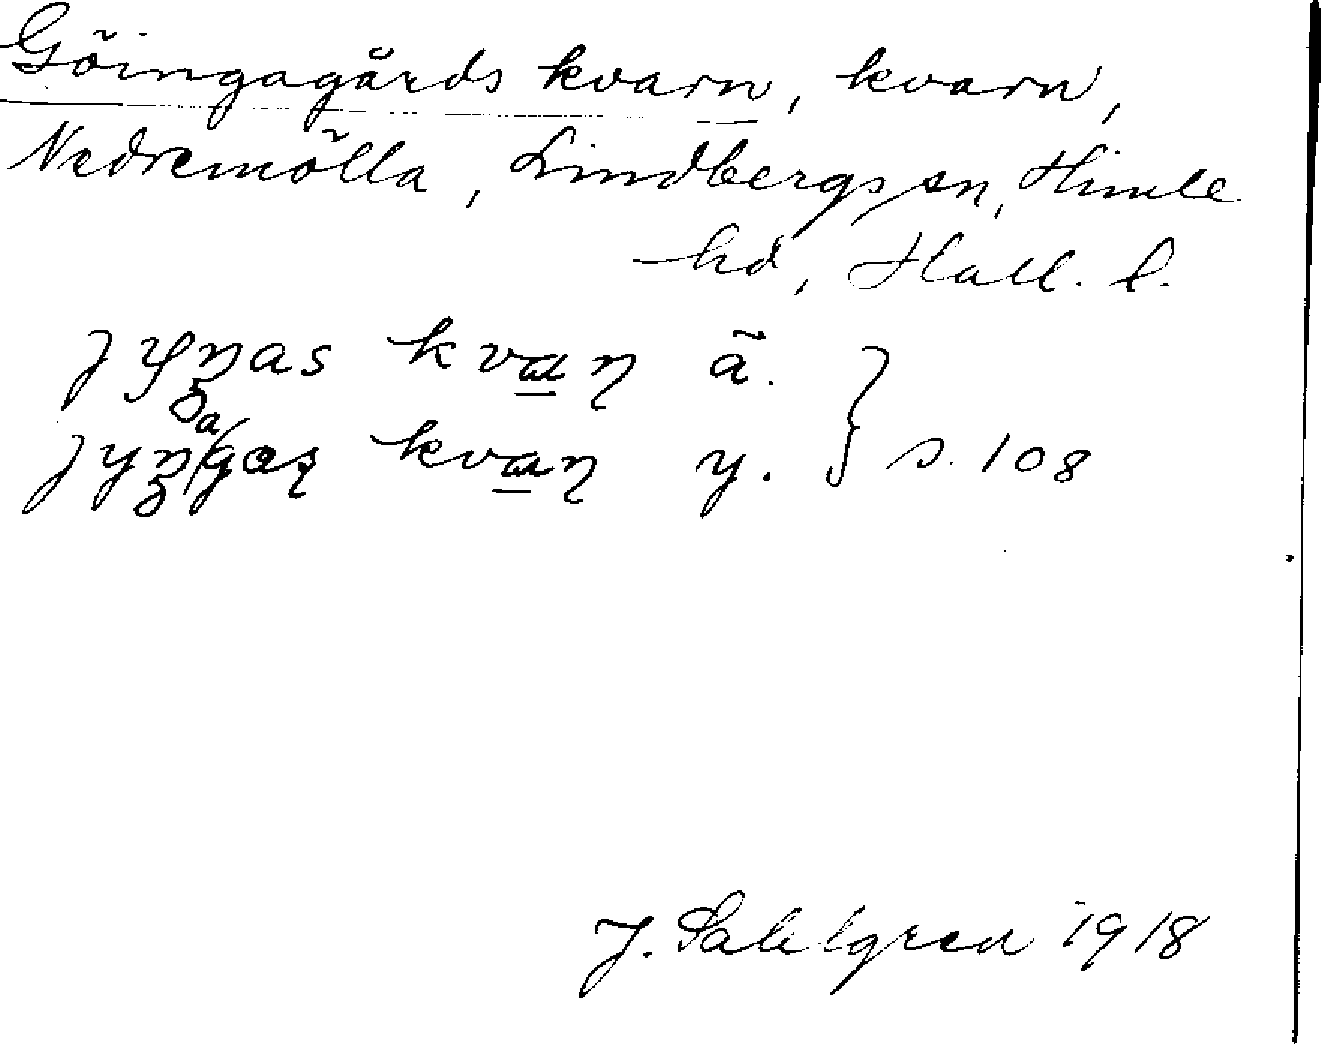 Göingagårds kvarn, kvarn,
Nedremölla, Lindbergs sn, Himle
hd, Hall. l.
kva̲ɳ ä.
kva̲ɳ y. } s. 108
J. Sahlgren 1918